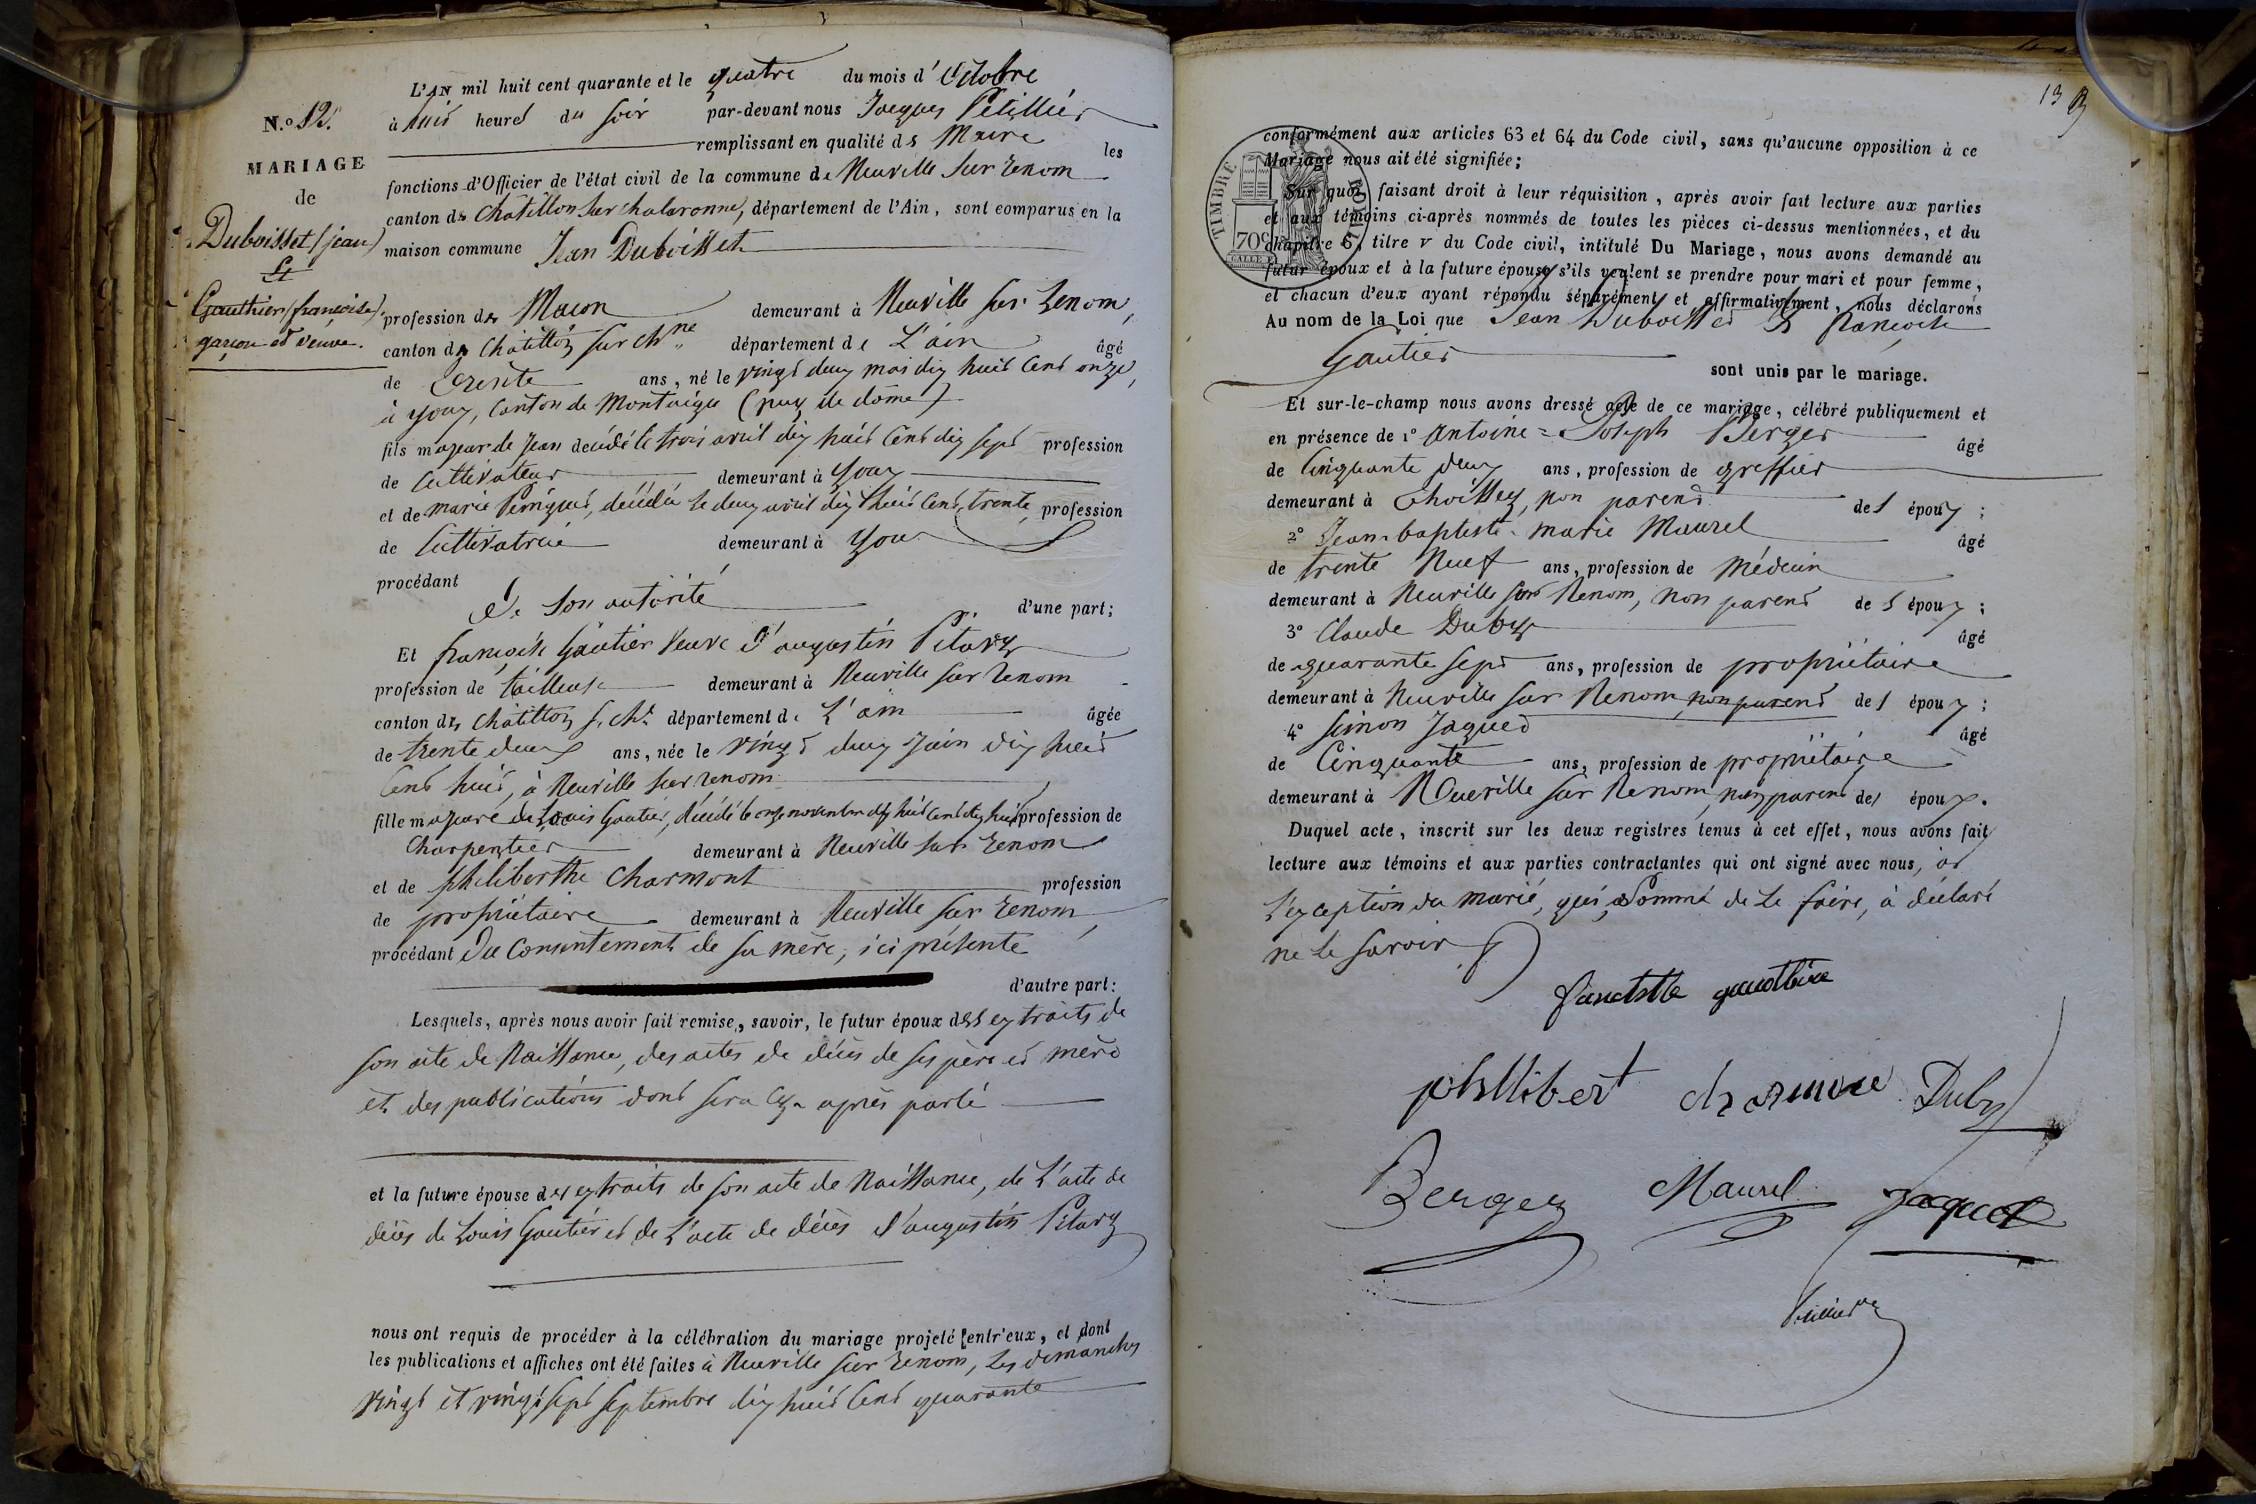 L'AN mil huit cent quarante et le quatre du mois d' Octobre
N.º 12.
à huit heures du soir par-devant nous Jacques Pétillier
remplissant en qualité de Maire les
MARIAGE
de
fonctions d'Officier de l'état civil de la commune de Neuville sur Renom
canton de Chatillon sur chalaronne, département de l'Ain, sont comparus en la
Duboisset (jean)
maison commune Jean Duboisset
et
Gauthier (françoise).
garçon et veuve.
profession de Macon demeurant à Neuville sur Renom,
canton de Chatillon sur Chne département de L'ain âgé
de trente ans, né le vingt deux mai dix huit cent onze,
à youx, Canton de Montaigu (puy de dôme)
fils majeur de Jean décédé le trois avril dix huit cent dix sept profession
de Cultivateur demeurant à Youx
et de marie décédée le deux avril dix huit cent trente, profession
de Cultivatrice demeurant à Youx
procédant
de son autorité d'une part;
Et françoise Gautier veuve d'augustin Pitary
profession de tailleuse demeurant à Neuville sur Renom
canton de Chatillon s. Che département de L'ain âgée
de trente deux ans, née le vingt deux Juin dix huit
Cent huit, à Neuville sur renom
fille majeure de Louis Gautier, décédé le onze novembre dix huit cent dix huit profession de
Charpentier demeurant à Neuville sur Renom
et de philiberthe Charmont profession
de propriétaire demeurant à Neuville sur Renom,
procédant du Consentement de sa mère, ici présente
d'autre part:
Lesquels, après nous avoir fait remise, savoir, le futur époux des extraits de
son acte de Naissance, des actes de décès de ses père et mère
et des publications dont sera Cy-après parlé
et la future épouse des extraits de son acte de Naissance, de L'acte de
décès de Louis Gautier et de L'acte de décès d'augustin Pitary
nous ont requis de procéder à la célébration du mariage projeté entr'eux, et dont
les publications et affiches ont été faites à Neuville sur Renom, les dimanches
vingt et vingt sept septembre dix huit Cent quarante
13
conformément aux articles 63 et 64 du Code civil, sans qu'aucune opposition à ce
Mariage nous ait été signifiée;
TIMBRE ROYAL
70c
Sur quoi, faisant droit à leur réquisition, après avoir fait lecture aux parties
et aux témoins ci-après nommés de toutes les pièces ci-dessus mentionnées, et du
chapitre 6, titre v du Code civil, intitulé Du Mariage, nous avons demandé au
futur époux et à la future épouse s'ils veulent se prendre pour mari et pour femme,
et chacun d'eux ayant répondu séparément et affirmativement, nous déclarons
Au nom de la Loi que Jean Duboisset et françoise
Gautier
sont unis par le mariage.
Et sur-le-champ nous avons dressé acte de ce mariage, célébré publiquement et
en présence de 1º Antoine = Joseph Berger âgé
de Cinquante deux ans, profession de greffier
demeurant à Thoissey, non parent de l époux;
2º Jean-baptiste-marie Maurel âgé
de trente Neuf ans, profession de Médecin
demeurant à Neuville sur Renom, non parent de l époux;
3º Claude Duby âgé
de quarante sept ans, profession de propriétaire
demeurant à Neuville sur Renom, non parent de l époux;
4º Simon Jaquet âgé
de Cinquante ans, profession de propriétaire
demeurant à Neuville sur Renom, non parent de l époux.
Duquel acte, inscrit sur les deux registres tenus à cet effet, nous avons fait
lecture aux témoins et aux parties contractantes qui ont signé avec nous, à
L'exception du marié, qui, Sommé de le faire, a déclaré
ne le savoir
Duby
Berger Maurel Jacquet